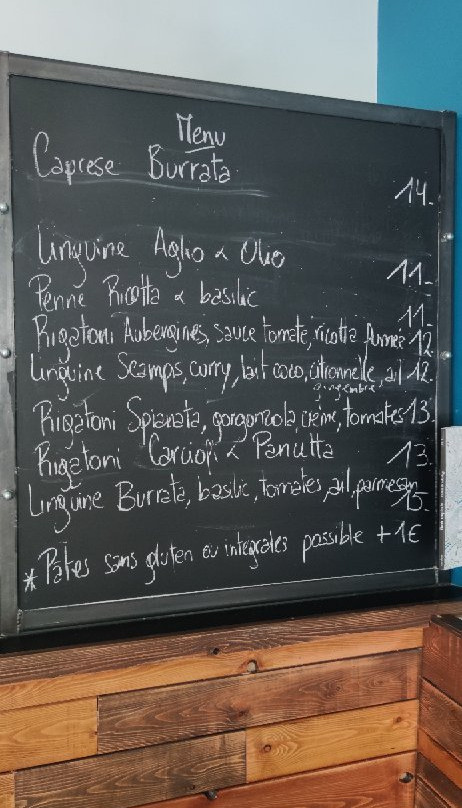 Menu
Caprese Burrata
14.-
Linguine Aglio & Olio
11.-
Penne Ricotta & basilic
11.-
Rigatoni Aubergines, sauce tomate, ricotta fumée 12.
Linguine Scamps, curry, lait coco, citronnelle, ail 12.-
gingembre
Rigatoni Spianata, gorgonzola, crème, tomates 13.-
Rigatoni Carciofi & Panutta 13.-
Linguine Burrata, basilic, tomates, ail, parmesan
15.-
* Pâtes sans gluten ou integrales possible + 1€